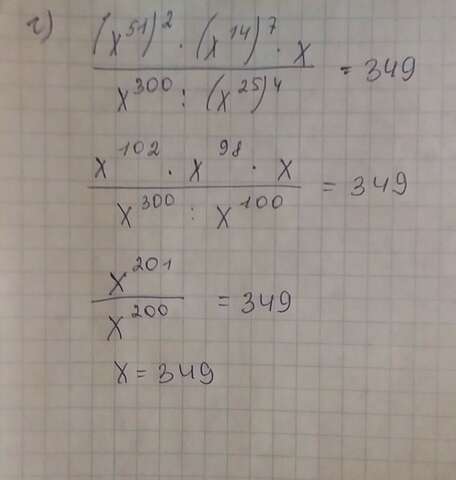 г) (x^51)^2 · (x^14)^7 · x / x^300 : (x^25)^4 = 349
x^102 · x^98 · x / x^300 : x^100 = 349
x^201 / x^200 = 349
x = 349